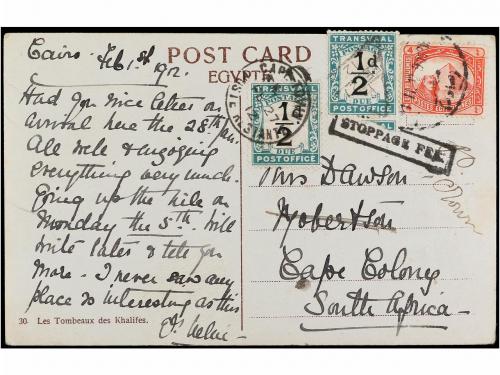 POST CARD
EGYPTE
Cairo. Feb 1st 1912.
Had you nice letters on
arrival here the 28th
All well & enjoying
everything very much.
Going up the nile on
Monday the 5th. Will
write later & tell you
more. I never saw any
place so interesting as this
30. Les Tombeaux des Khalifes.
TRANSVAAL
POSTAGE
1/2d
DUE
POST OFFICE
TRANSVAAL
POSTAGE
1/2
DUE
POST OFFICE
STOPPAGE FEE
Mrs Dawson
Robertson
Cape Colony
South Africa